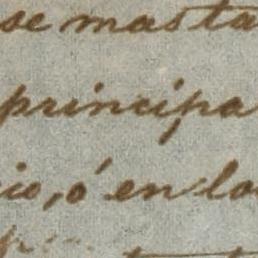 se mas ta
principa
cio, ó en lo